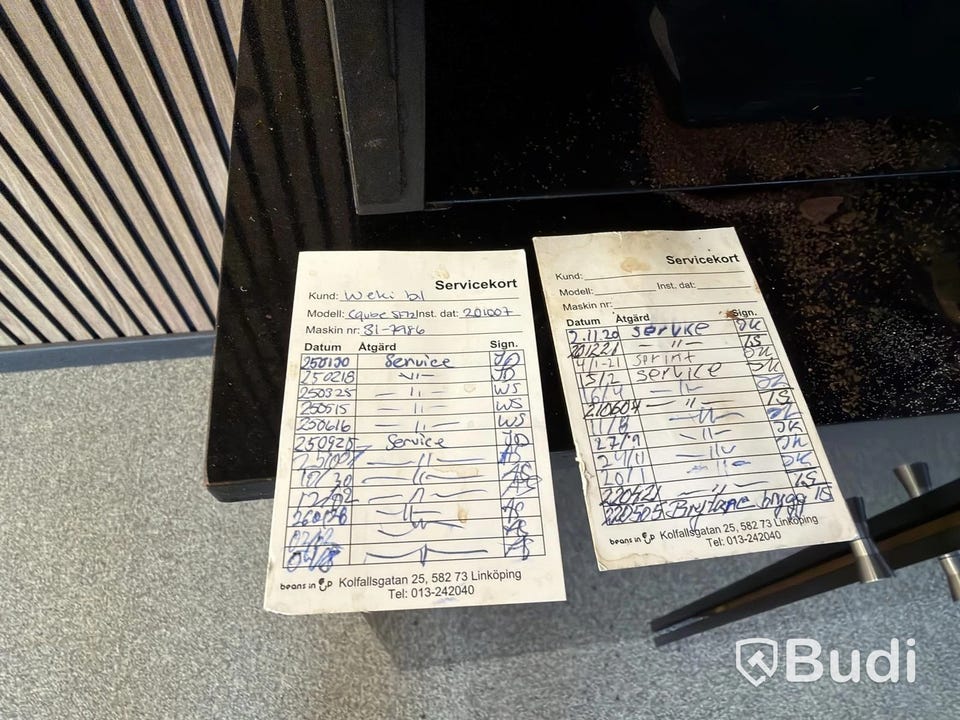 Servicekort
Kund: Weki bl
Modell: Cqube SF12 Inst. dat: 201007
Maskin nr: 31-7986
Datum Åtgärd Sign.
250120 Service JO
250218 -"- JO
250325 - " - WS
250515 - " - WS
250616 - " - WS
250925 Service JO
- " - AS
10/30 - " -
12/02 - " -
- " - AS
AS
- " - AS
beans in cup Kolfallsgatan 25, 582 73 Linköping
Tel: 013-242040
Servicekort
Kund:
Modell: Inst. dat:
Maskin nr:
Datum Åtgärd Sign.
2.11.20 service JK
201221 - " - LS
4/1-21 sprint JK
15/2 service JK
16/4 - " -
210604 - " - LS
11/8 - " -
27/9 - " - JK
24/11 - " - JK
20/1 - " - JK
220421 - " - LS
220505 Brytare brygg LS
beans in cup Kolfallsgatan 25, 582 73 Linköping
Tel: 013-242040
Budi